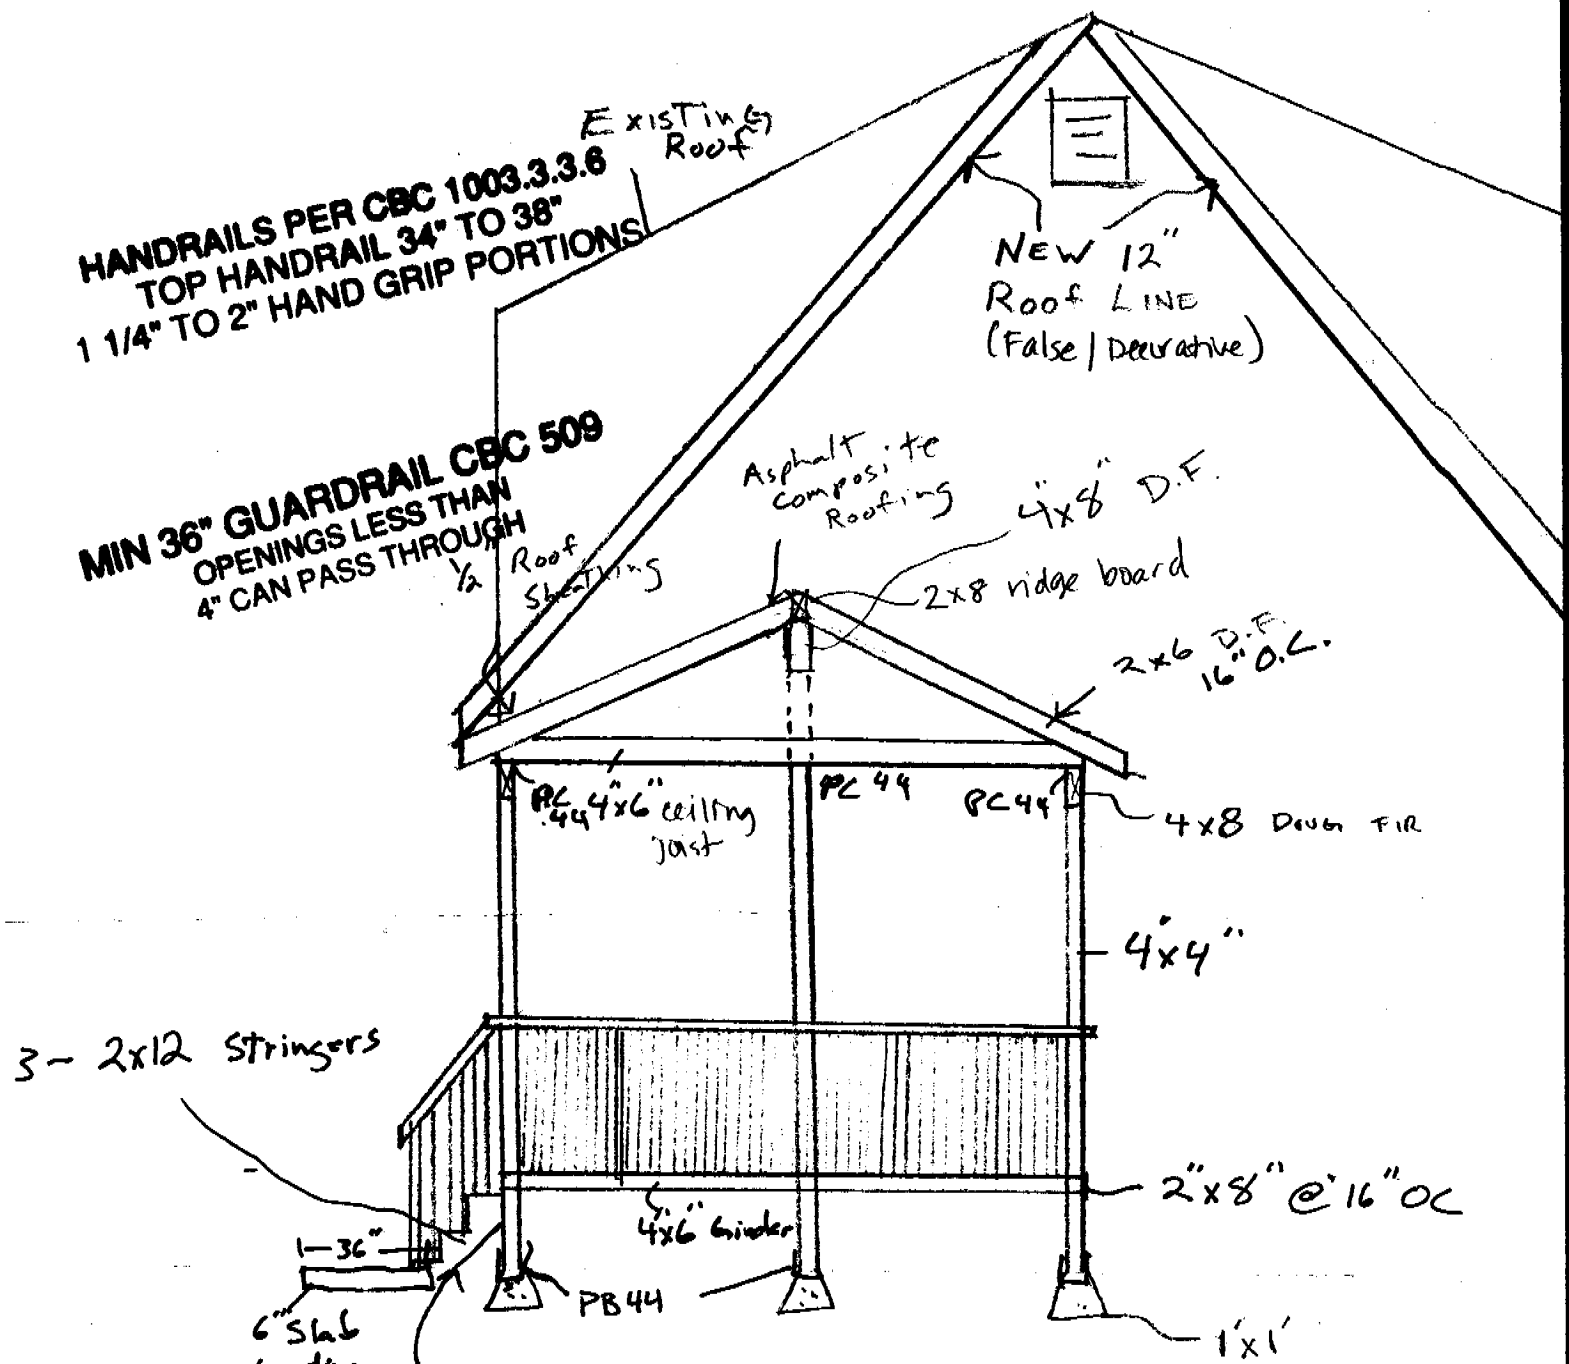 Existing
Roof
HANDRAILS PER CBC 1003.3.3.6
TOP HANDRAIL 34" TO 38"
1 1/4" TO 2" HAND GRIP PORTIONS
NEW 12"
Roof LINE
(False/Decorative)
MIN 36" GUARDRAIL CBC 509
OPENINGS LESS THAN
4" CAN PASS THROUGH
Asphalt
composite
Roofing
4"x8" D.F.
1/2" Roof
Sheathing
2x8 ridge board
2x6 D.F.
16" O.C.
PC
44
4"x6" ceiling
joist
PC 44
PC 44
4x8 DOUG FIR
4"x4"
3- 2x12 Stringers
2"x8" @ 16" OC
4"x6" Girder
36"
PB44
6" Slab
1'x1'